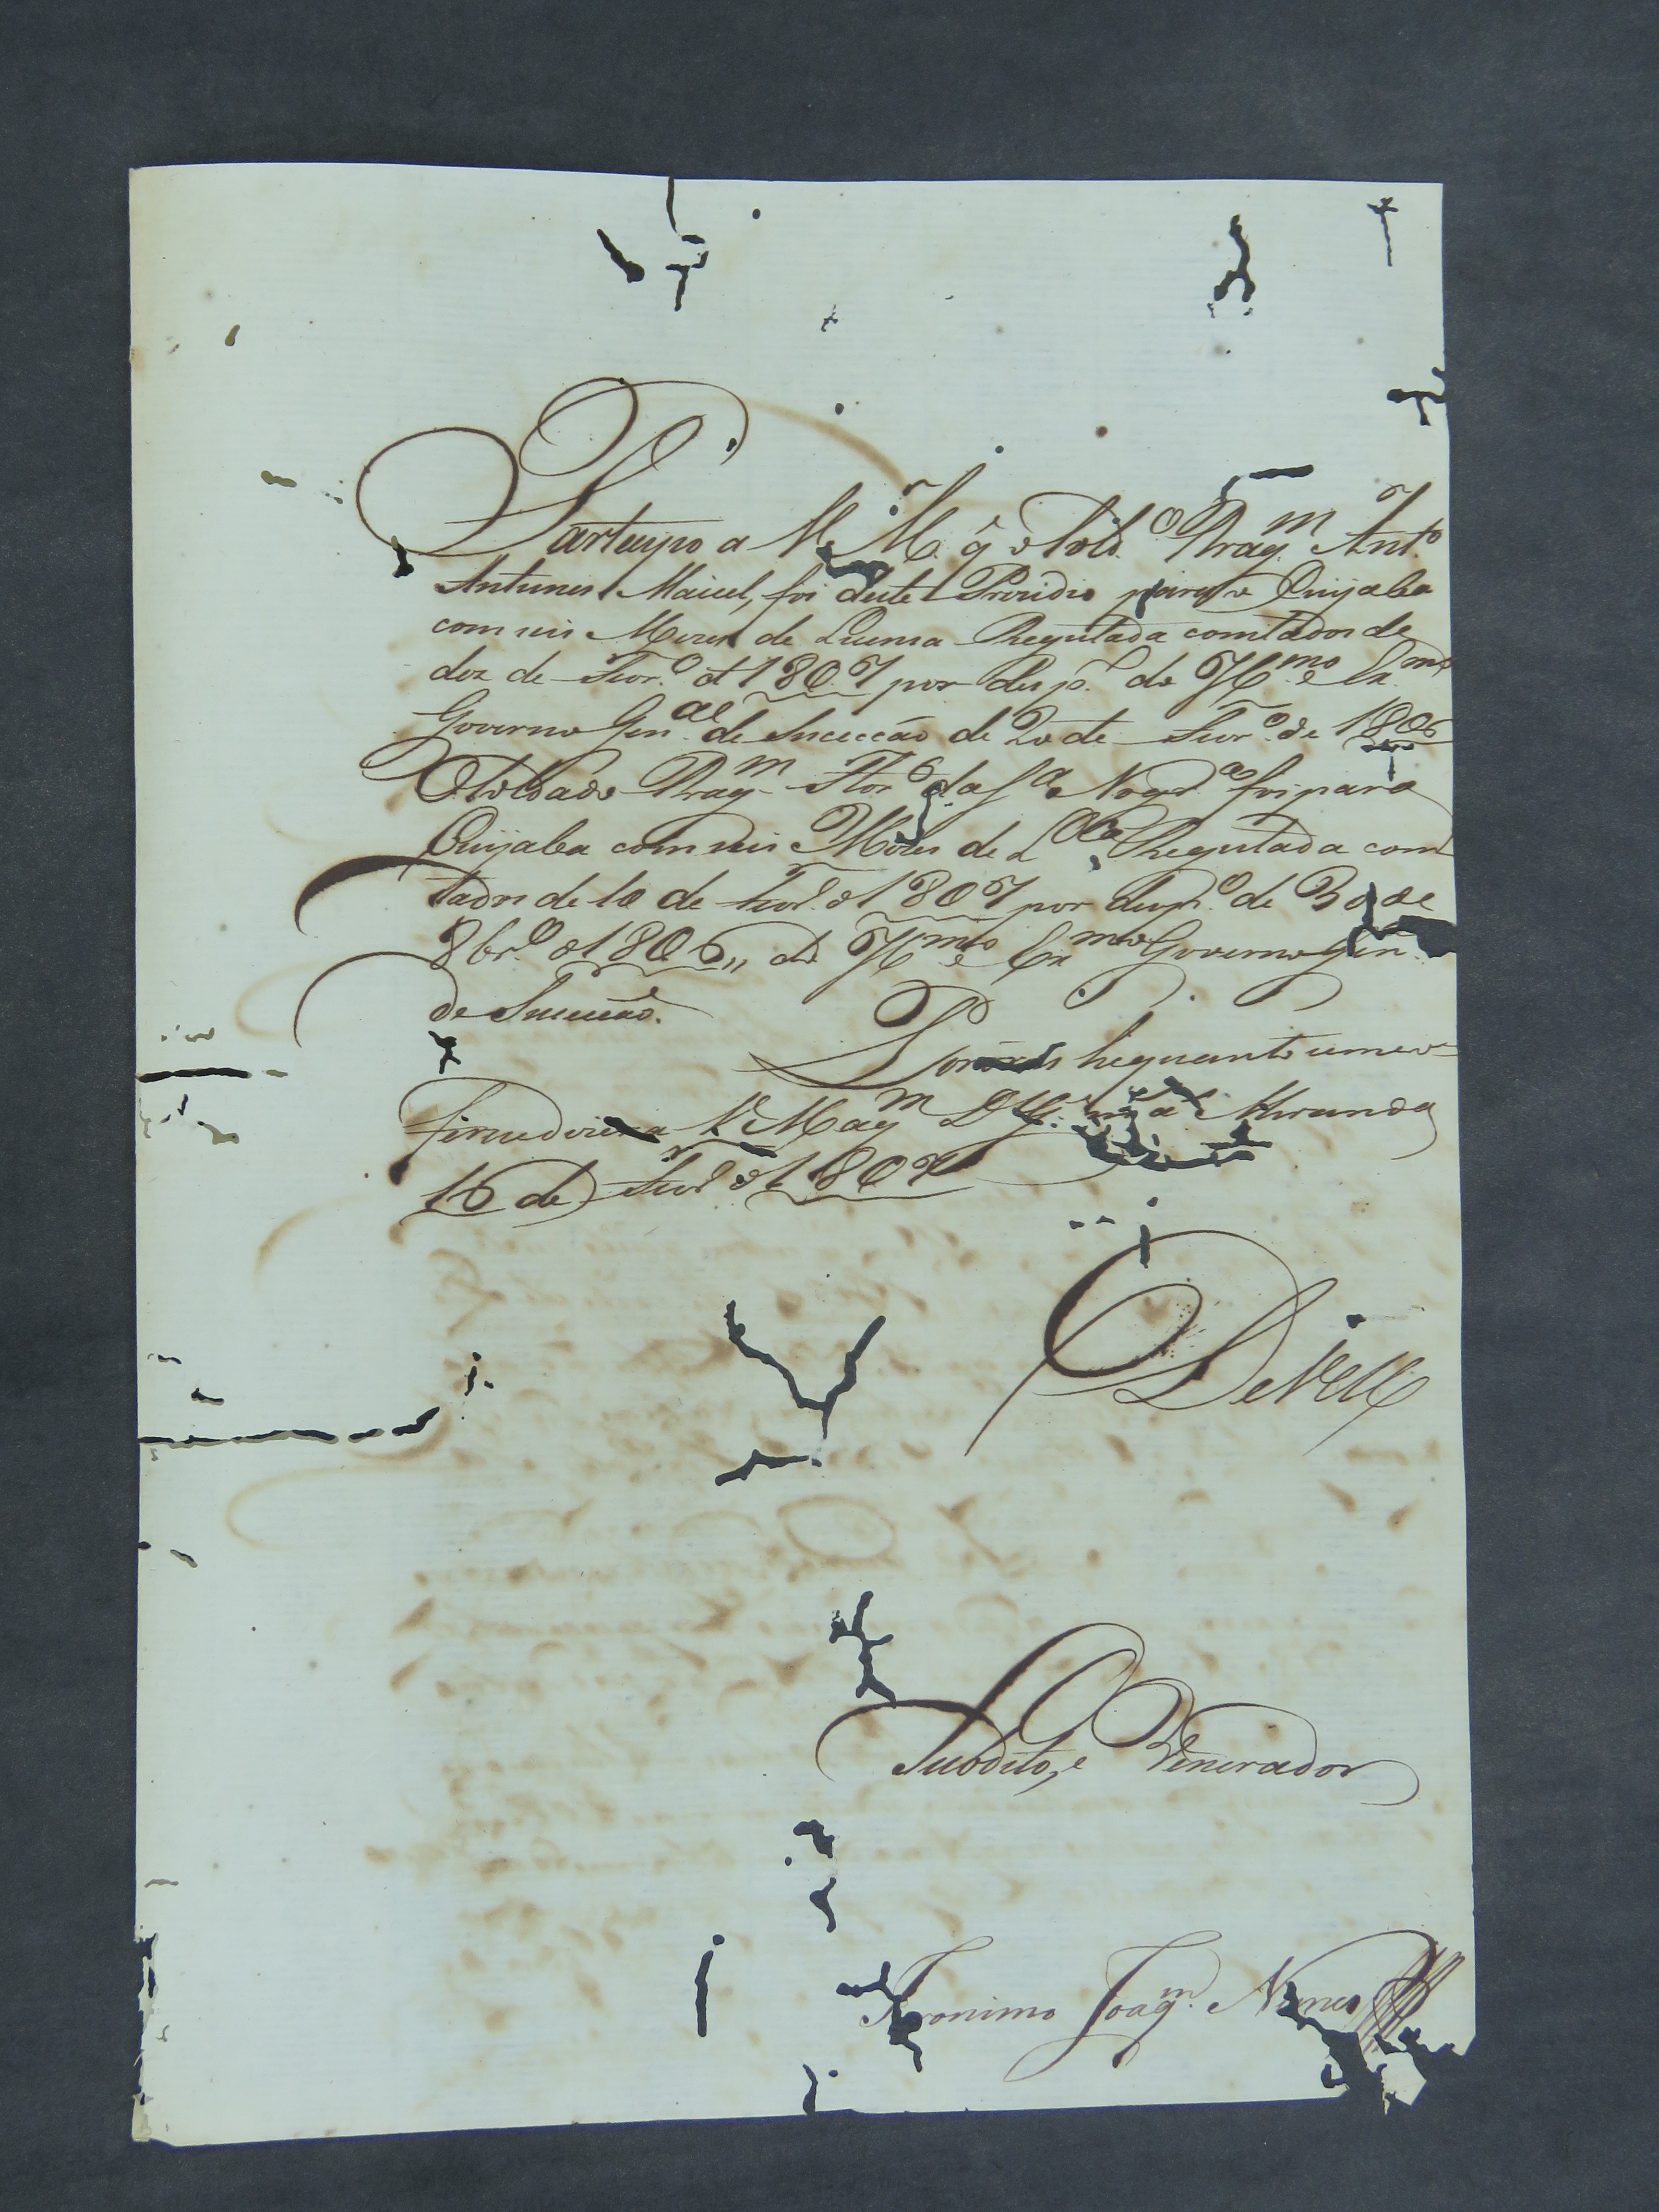 Partecipo a V. M. q̃ o Sold.º Drag.m Ant.º
Antunes Maciel, foi deste Prezidio para o Cuyaba
com seis Mezes de Licensa Regutada comtados de
doz de Fevr.º d 1807 por desp.º do Il.mo e Ex.mo
Governo Gen.al de Sucecção de 20 de Fevr.º de 1806
O Soldado Drag.m Flor.º da S.a Nogr.a foi para
Cuyaba com seis Mezes de L.ca Regutada com
tados de 10 de Fevr.º d 1807 por desp.º de 30 de
8br.º d 1806,, do Il.mo e Ex.mo Governo Gen.
de Sucecão.
Por óra he quanto se me o-
ferece dizer a V. M. a q.m D.s G.e Miranda
16 de Fevr.º d 1807
De V. M.
Subdito, e Venerador
Jeronimo Joaq.m Nunes